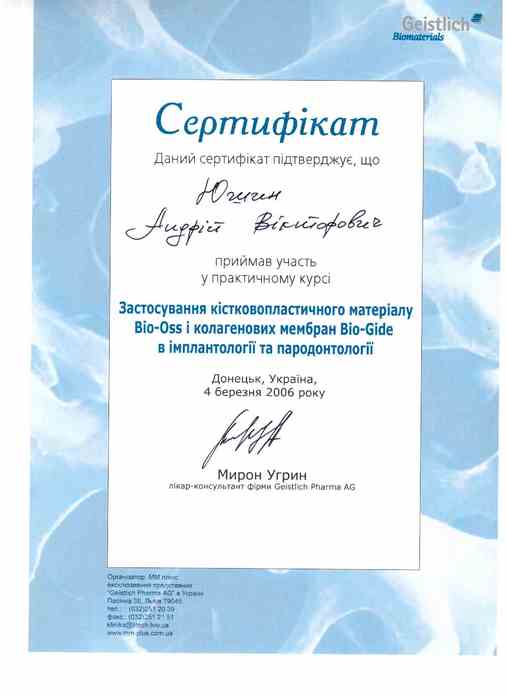 Geistlich
Biomaterials
Сертифікат
Даний сертифікат підтверджує, що
Андрій Вікторович
приймав участь
у практичному курсі
Застосування кістковопластичного матеріалу
Bio-Oss і колагенових мембран Bio-Gide
в імплантології та пародонтології
Донецьк, Україна,
4 березня 2006 року
Мирон Угрин
лікар-консультант фірми Geistlich Pharma AG
Організатор: ММ плюс
ексклюзивний представник
"Geistlich Pharma AG" в Україні
79045
тел.:
факс:
www.mm-plus.com.ua